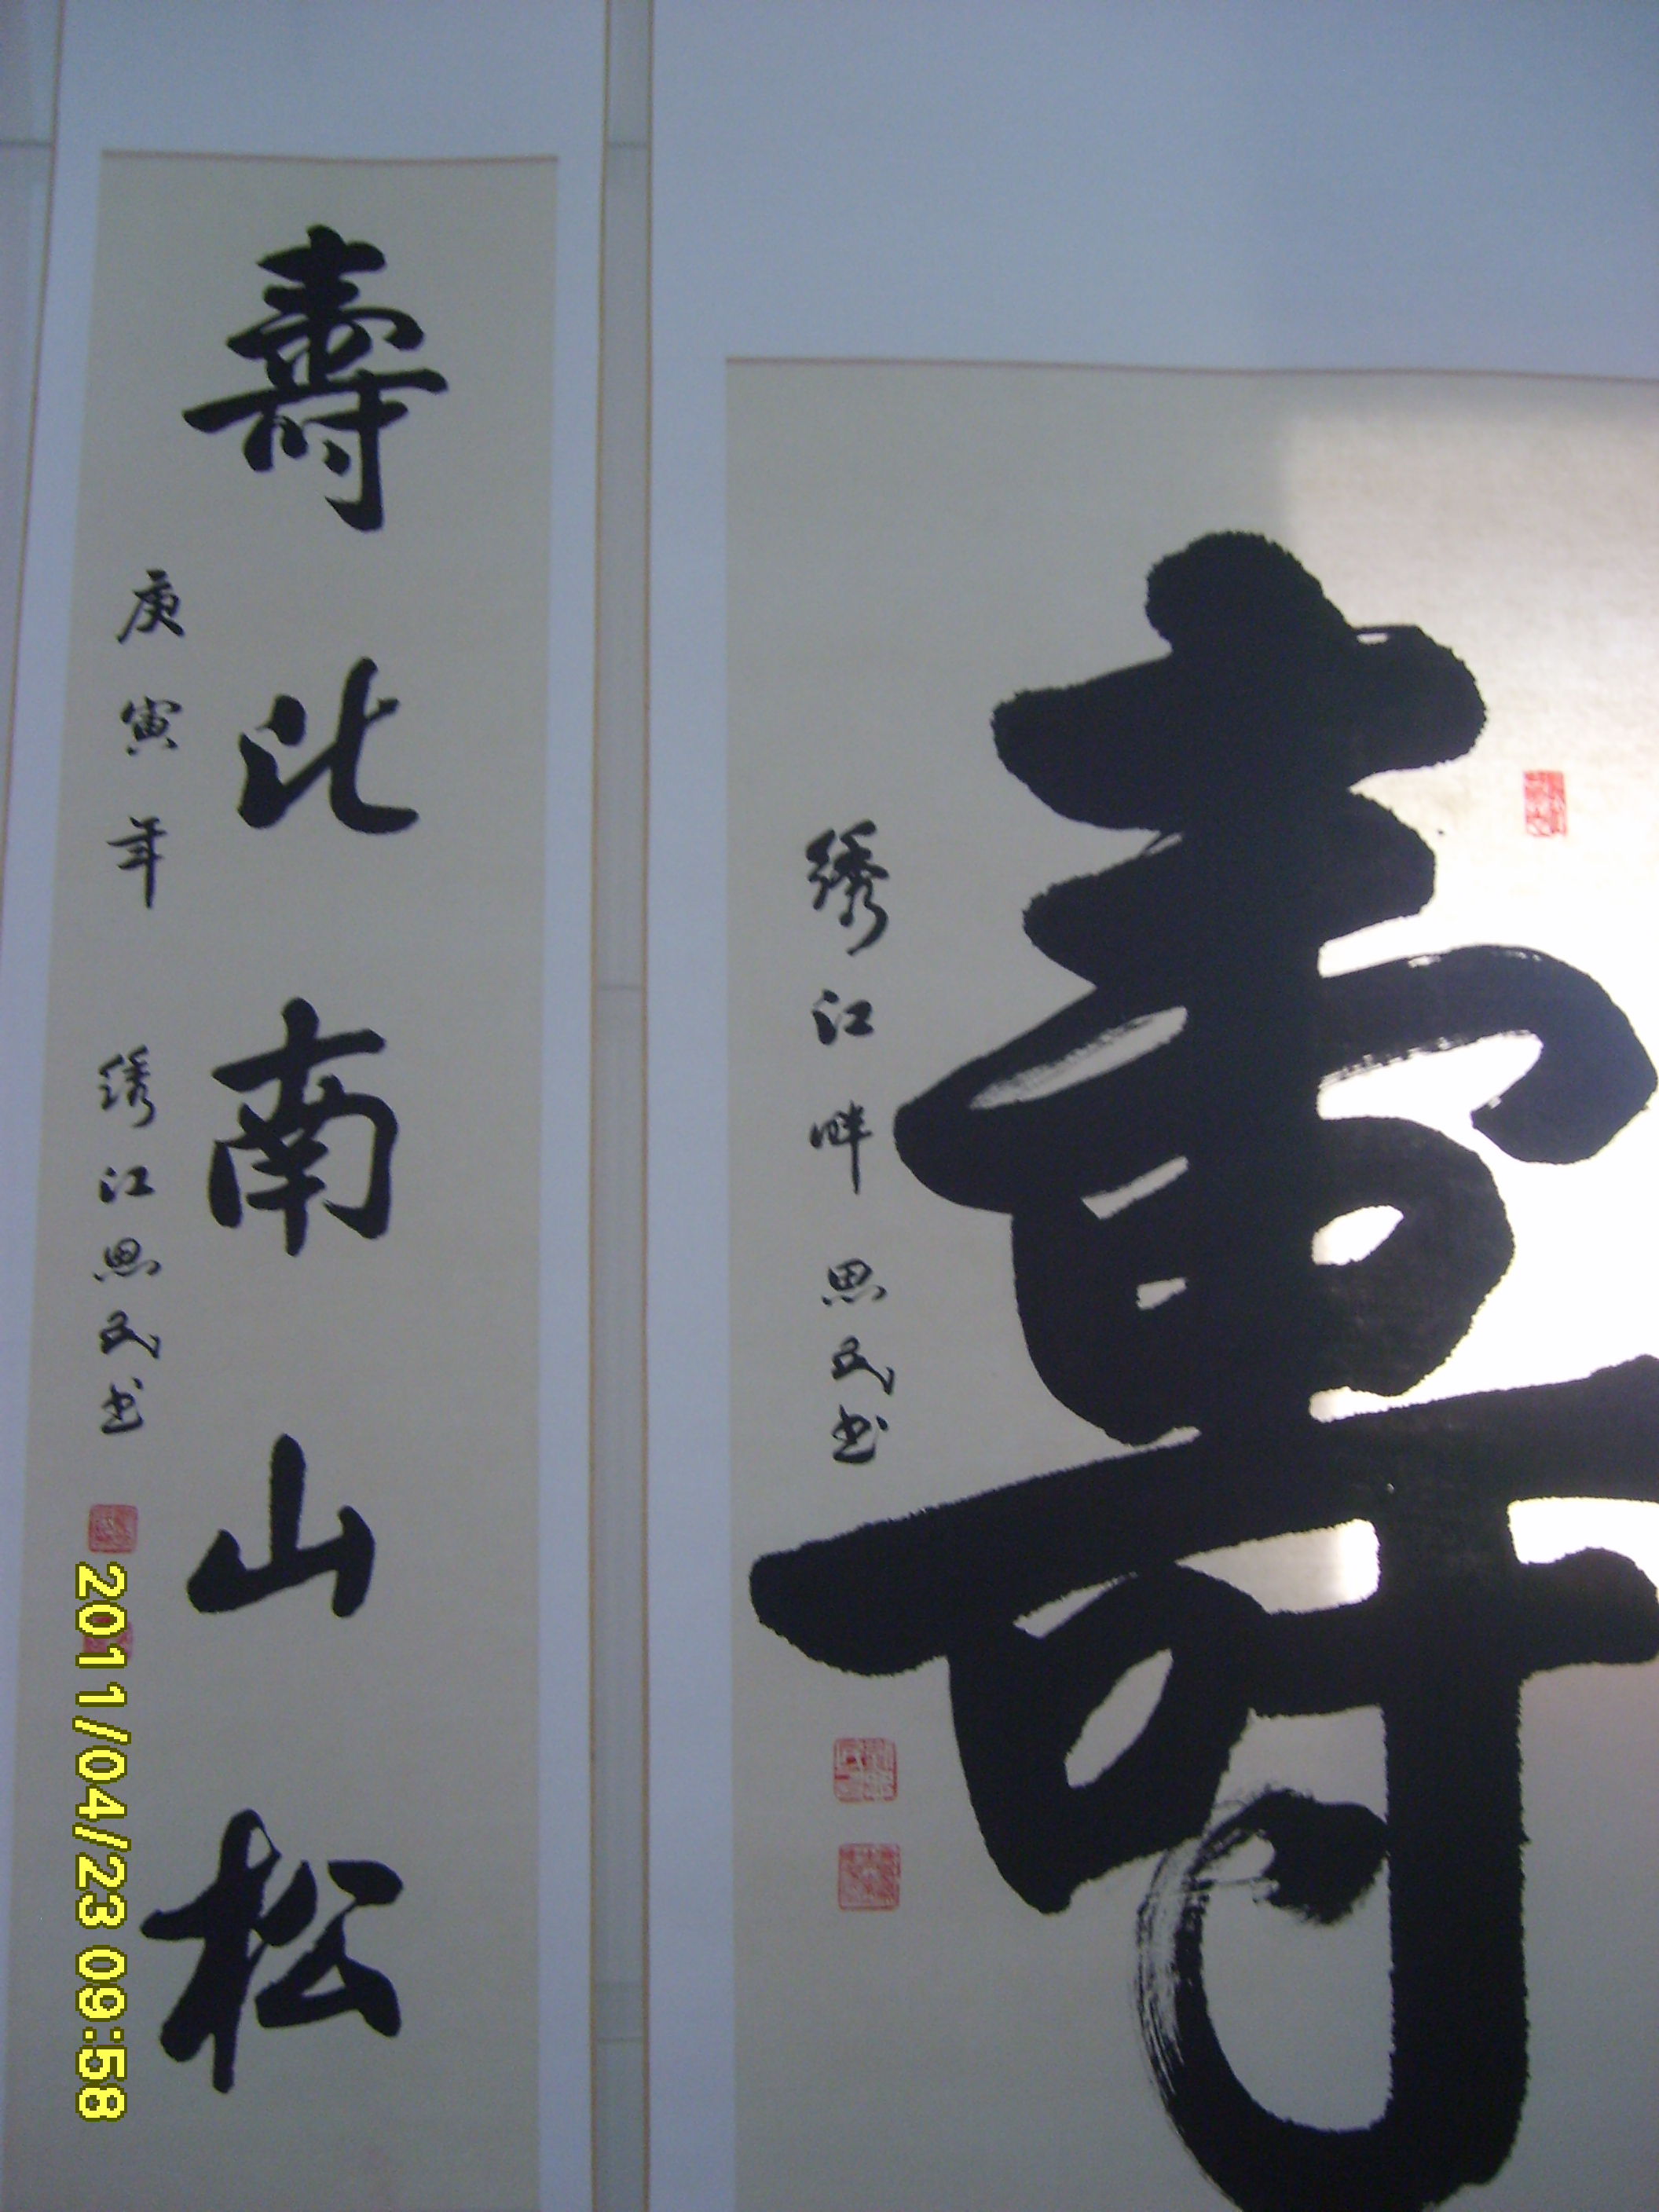 壽
绣江畔思民书
壽比南山松
庚寅年 绣江思民书
2011/04/23 09:58